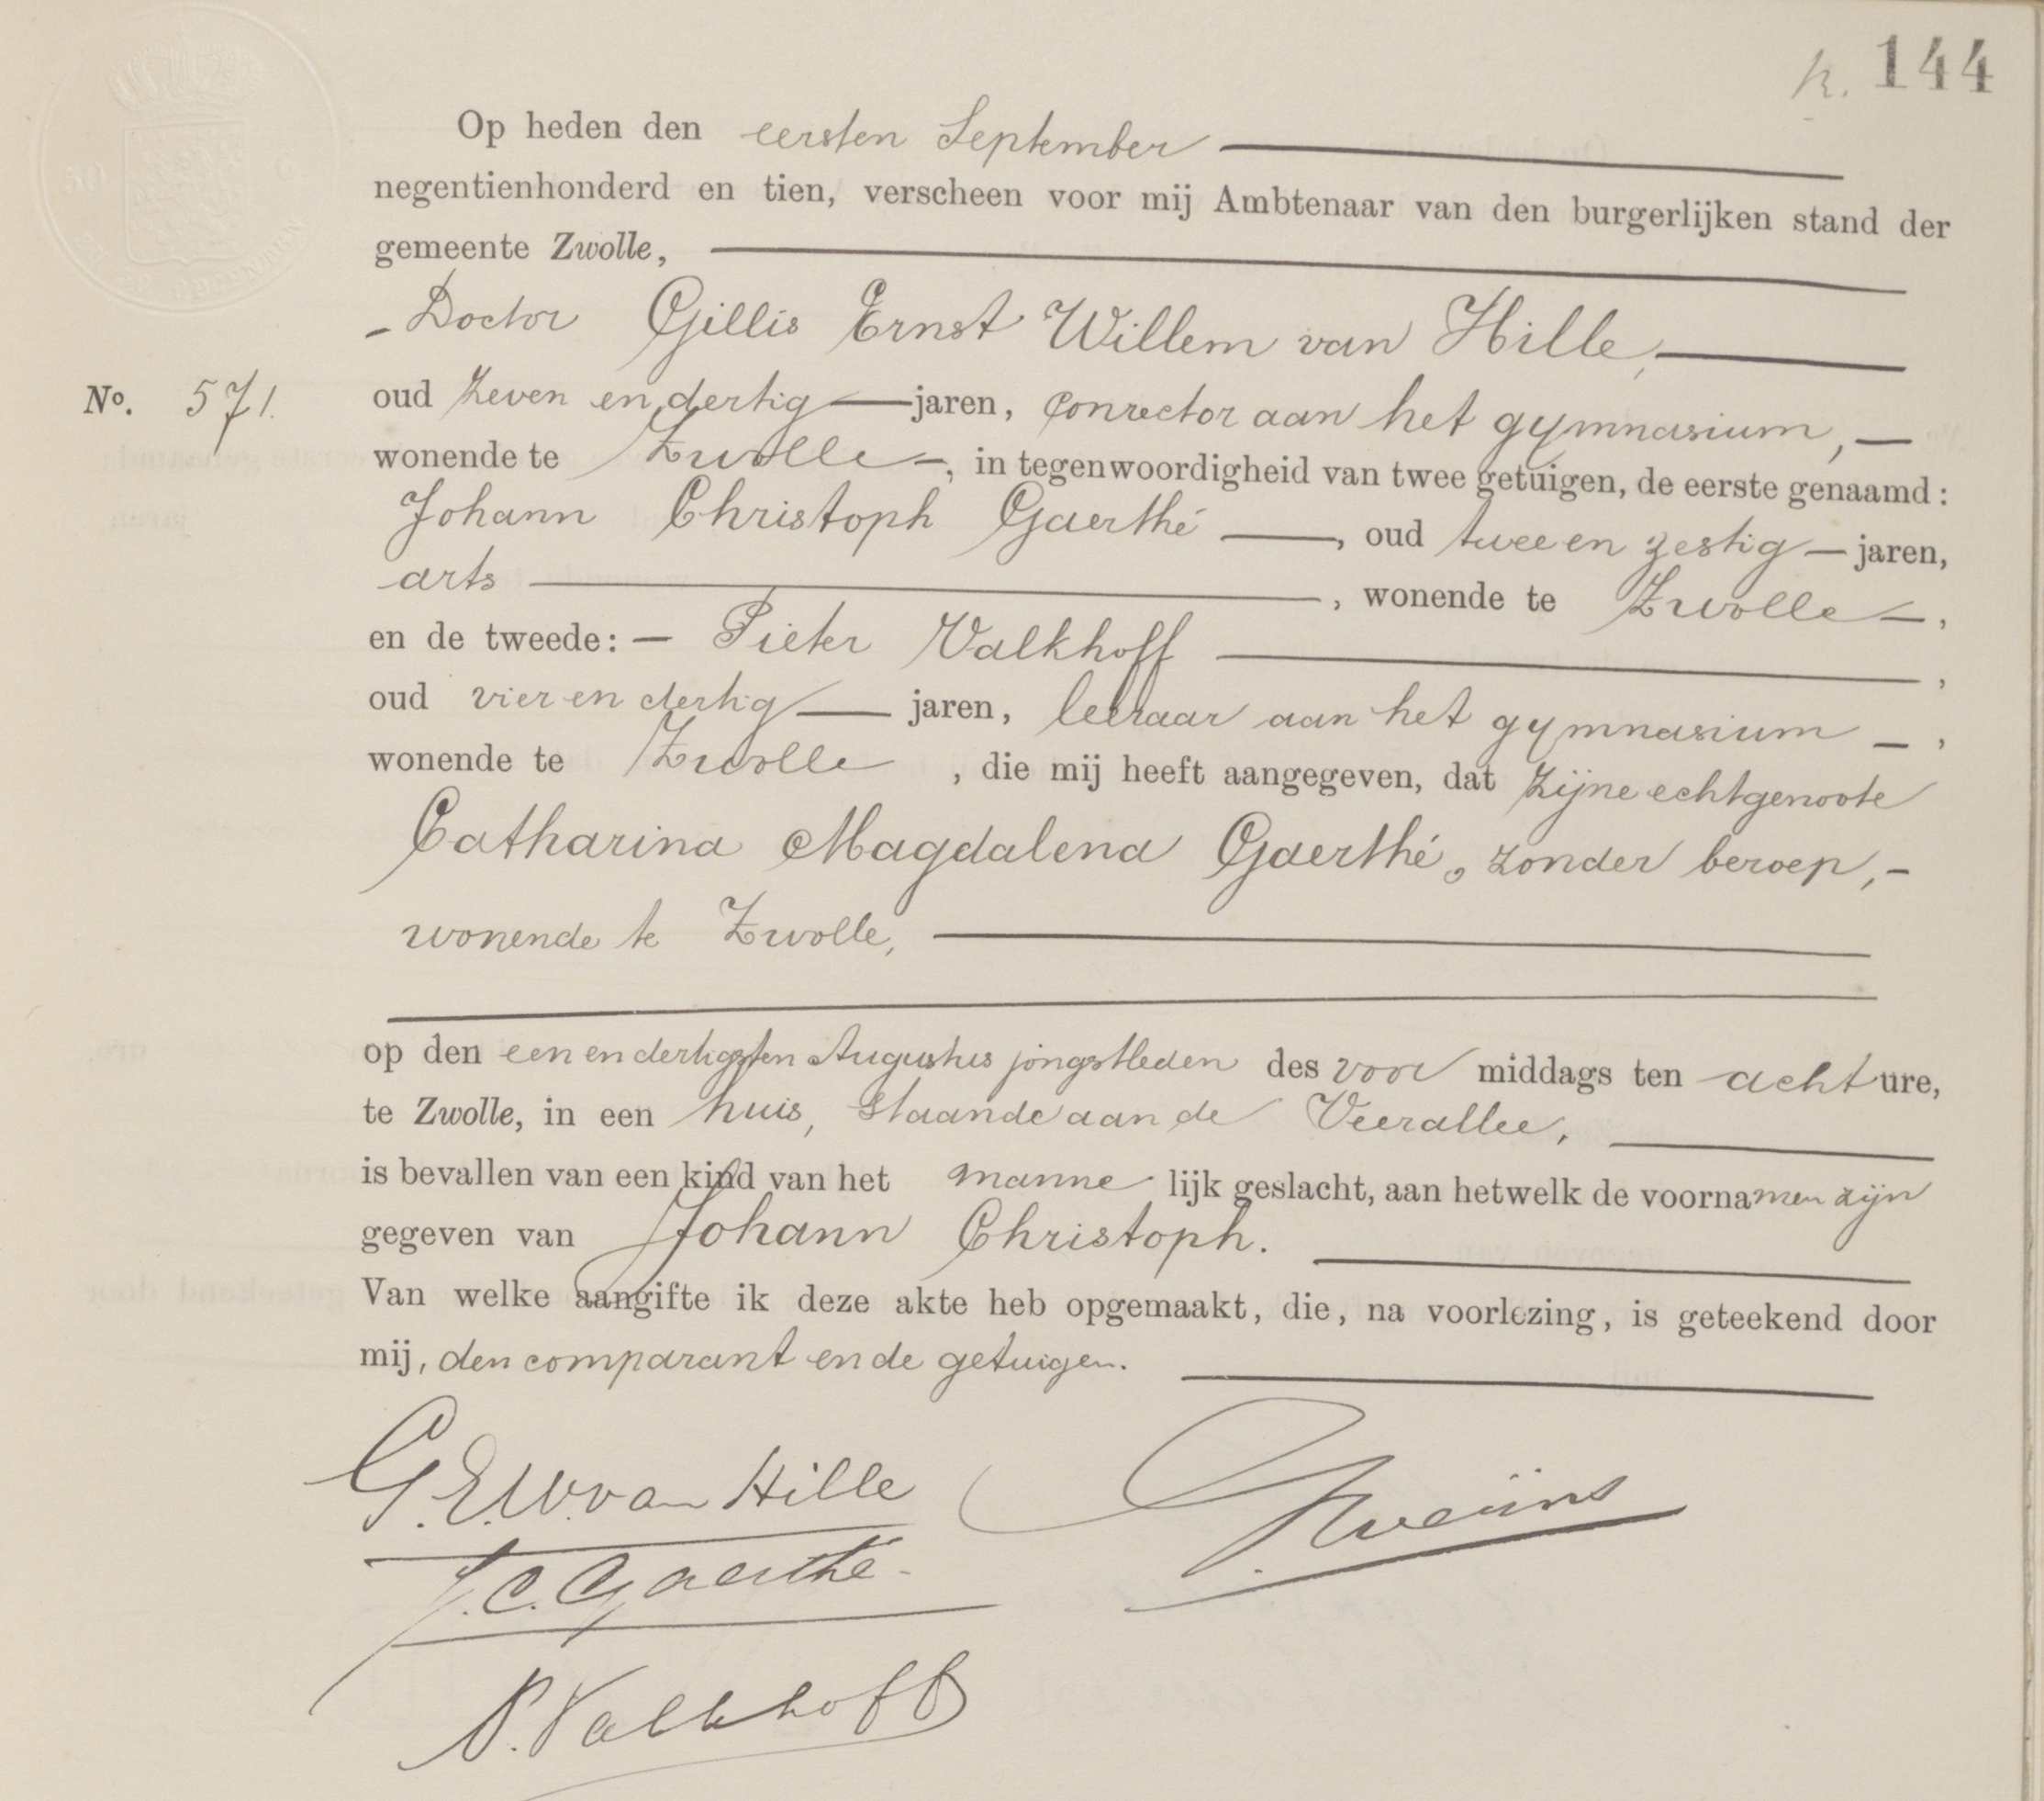 k. 144
Op heden den eersten September
negentienhonderd en tien, verscheen voor mij Ambtenaar van den burgerlijken stand der
gemeente Zwolle,
Doctor Gillis Ernst Willem van Hille,
No. 571.
oud zeven en dertig jaren, conrector aan het gymnasium,
wonende te Zwolle, in tegenwoordigheid van twee getuigen, de eerste genaamd:
Johann Christoph Gaerthé, oud twee en zestig jaren,
arts, wonende te Zwolle,
en de tweede: Pieter Valkhoff,
oud vier en dertig jaren, leeraar aan het gymnasium,
wonende te Zwolle, die mij heeft aangegeven, dat zijne echtgenoote
Catharina Magdalena Gaerthé, zonder beroep,
wonende te Zwolle,
op den een en dertigsten Augustus jongstleden des voor middags ten acht ure,
te Zwolle, in een huis, staande aan de Veerallee,
is bevallen van een kind van het manne lijk geslacht, aan hetwelk de voornamen zijn
gegeven van Johann Christoph.
Van welke aangifte ik deze akte heb opgemaakt, die, na voorlezing, is geteekend door
mij, den comparant en de getuigen.
G.E.W. van Hille
J.C. Gaerthé
P. Valkhoff